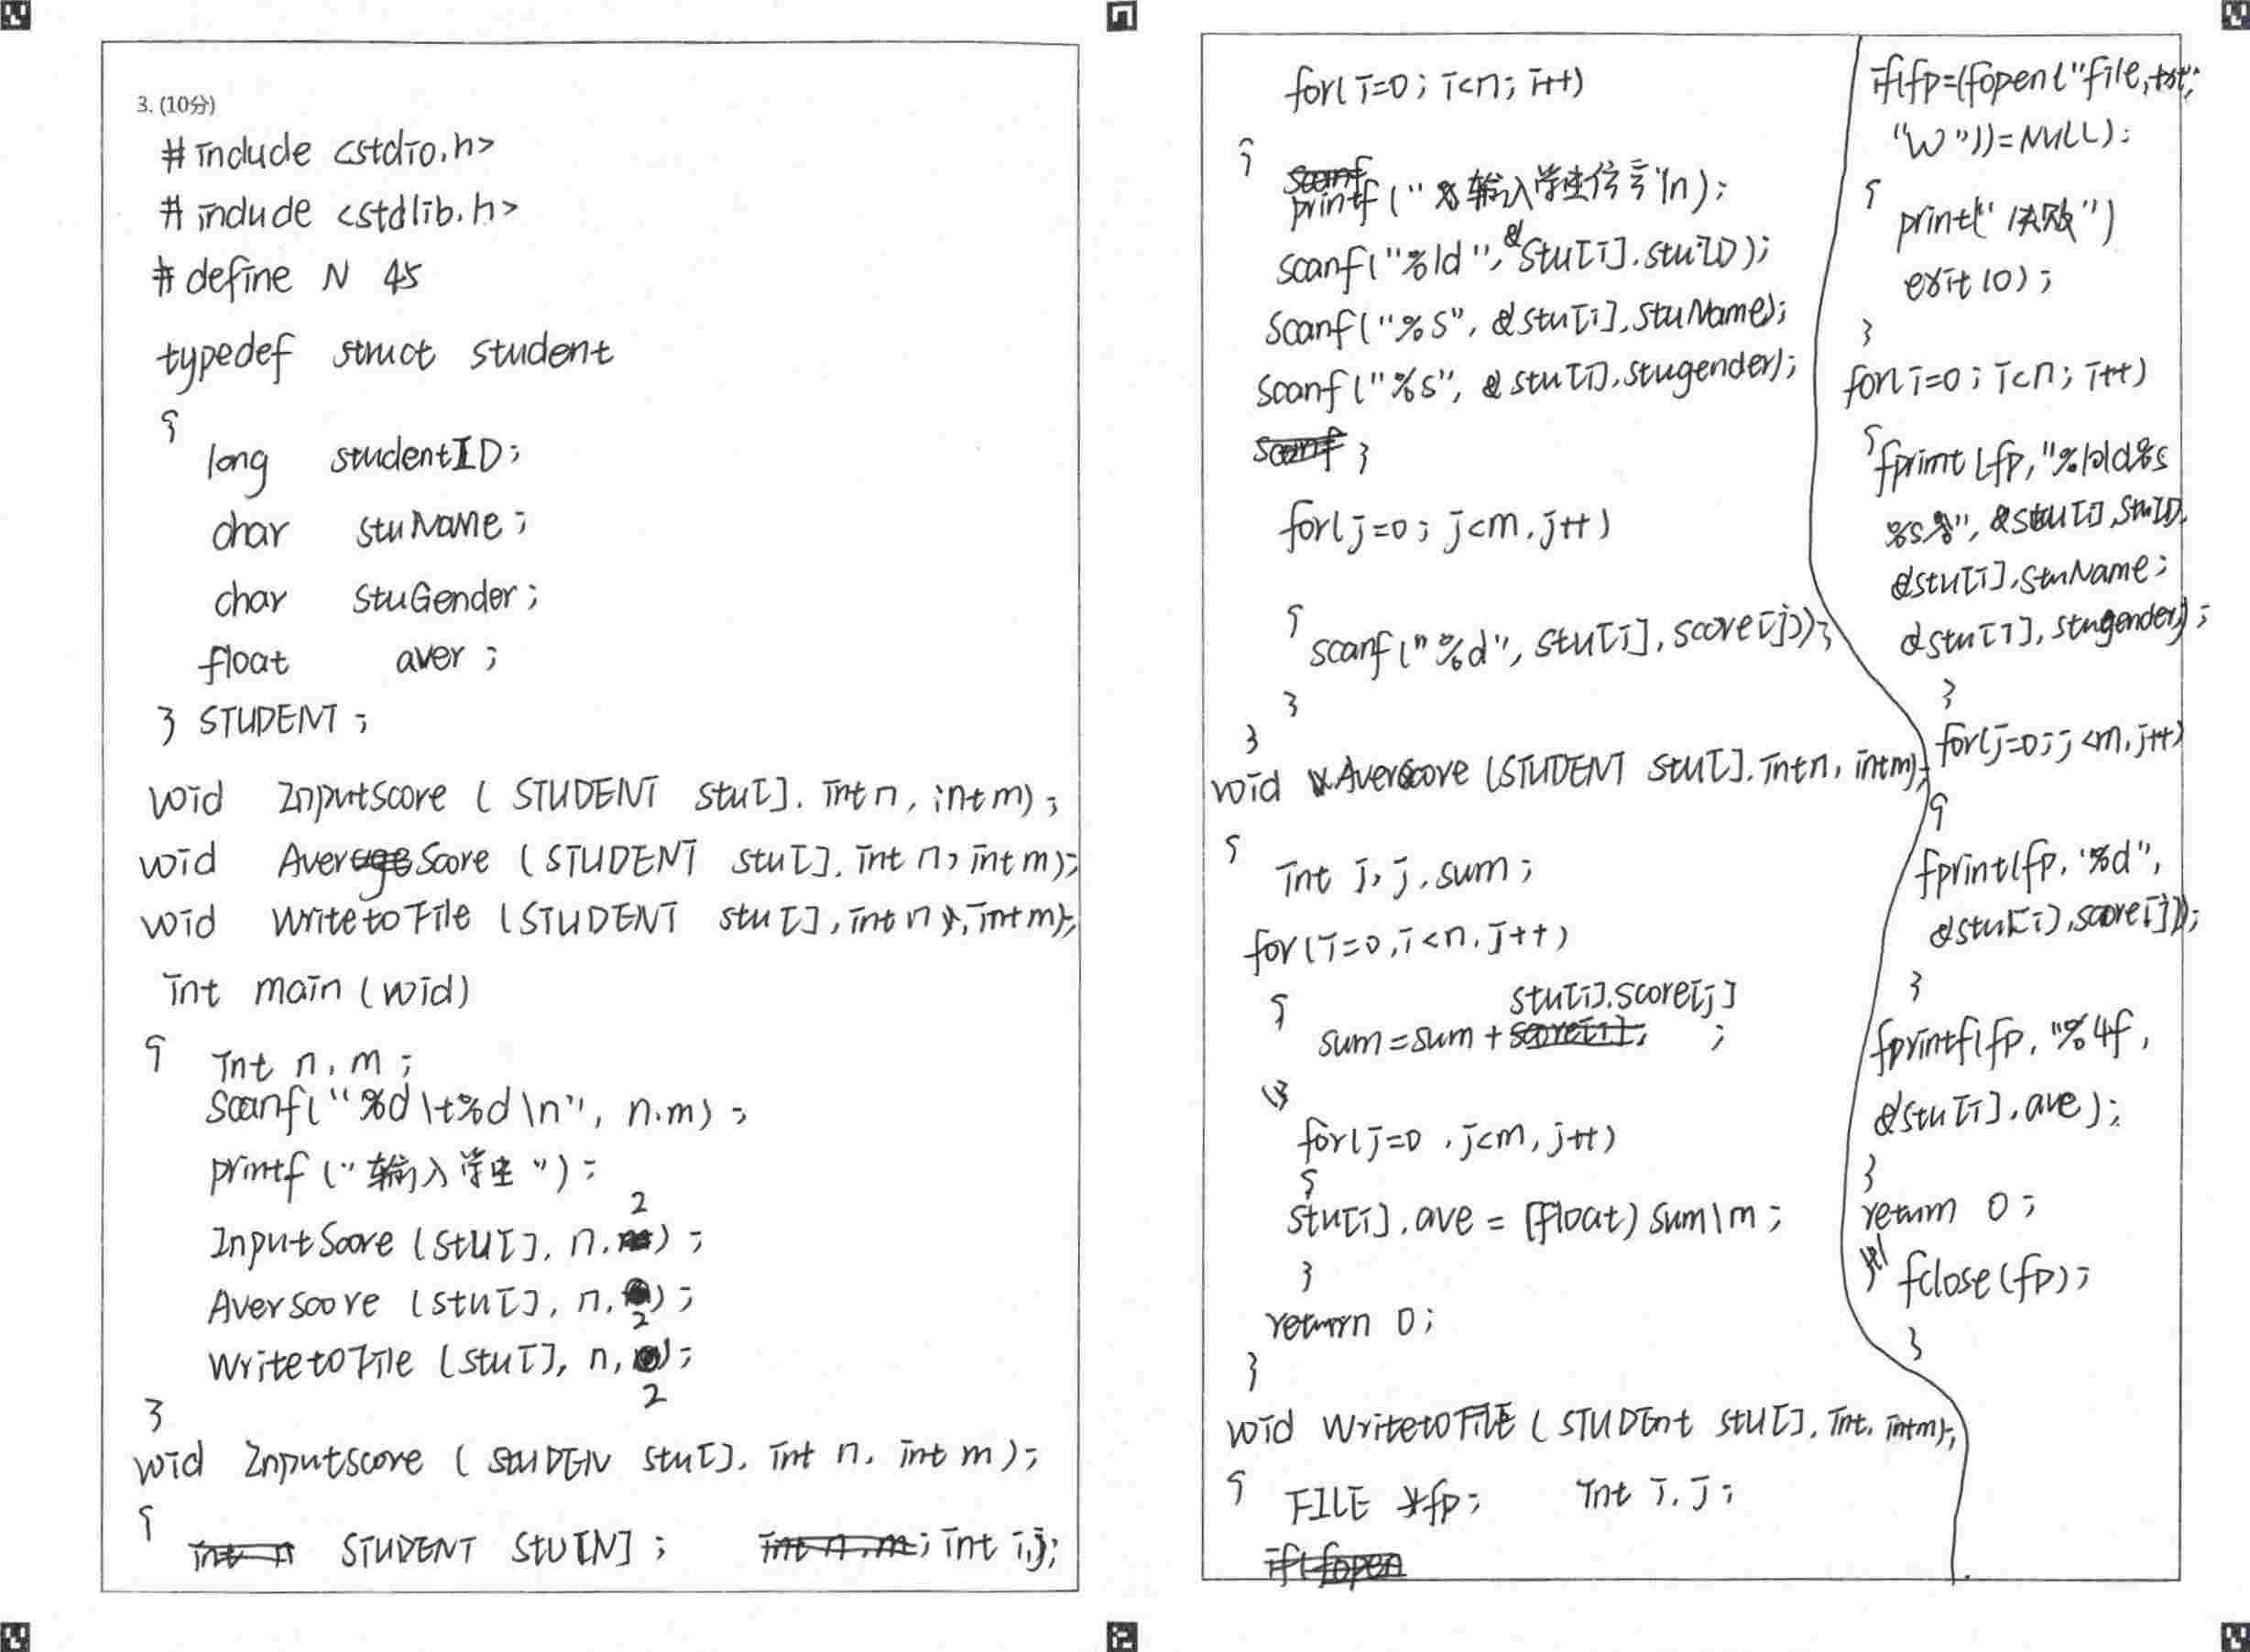 3. (10分)
#include <stdio.h>
#include <stdlib.h>
#define N 45
typedef struct student
{
long studentID;
char stuName;
char stuGender;
float aver;
} STUDENT;
void InputScore ( STUDENT stu[], int n, int m);
void AverScore (STUDENT stu[], int n, int m);
void WritetoFile (STUDENT stu[], int n, int m);
int main (void)
{
int n, m;
scanf("%d\t%d\n", n,m);
printf ("输入学生");
InputScore (stu[], n, 2);
Averscore (stu[], n, 2);
WritetoFile (stu[], n, 2);
}
void Inputscore ( STUDEN stu[], int n, int m);
{
STUDENT stu[N]; int i,j;
for(i=0; i<n; i++)
{
printf("输入学生信言"\n);
scanf("%ld", &stu[i].stuID);
scanf("%s", &stu[i].stuName);
scanf("%s", &stu[i].stugender);
}
for(j=0; j<m, j++)
{
scanf("%d", stu[i].score[j]);
}
}
void AverScore (STUDENT stu[], int n, int m);
{
int i, j, sum;
for(i=0, i<n, j++)
{
stu[i].score[j]
sum=sum+ ;
}
for(j=0, j<m, j++)
{
stu[i].ave = (float) sum\m;
}
return 0;
}
void WritetoFILE (STUDEnt stu[], int, int m);
{
FILE *fp; int i, j;
if(fp=(fopen("file.txt",
"w"))=NULL);
{
print("失败")
exit(0);
}
for(i=0; i<n; i++)
{
fprint(fp,"%10ld%s
%s", &stu[i].stuID,
&stu[i].stuName;
&stu[i].stugender);
}
for(j=0; j<m, j++)
{
fprint(fp, "%d",
&stu[i].score[j]);
}
fprintf(fp, "%4f,
&stu[i].ave);
}
return 0;
fclose(fp);
}